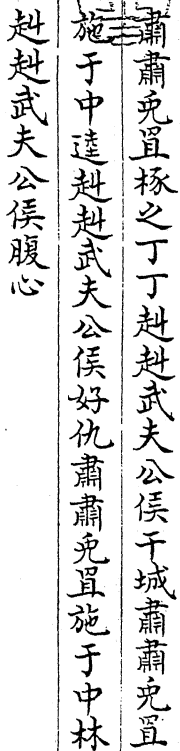 肅肅兎罝椓之丁丁赳赳武夫公侯干城肅肅兎罝
施于中逵赳赳武夫公侯好仇肅肅兎罝施于中林
赳赳武夫公侯腹心